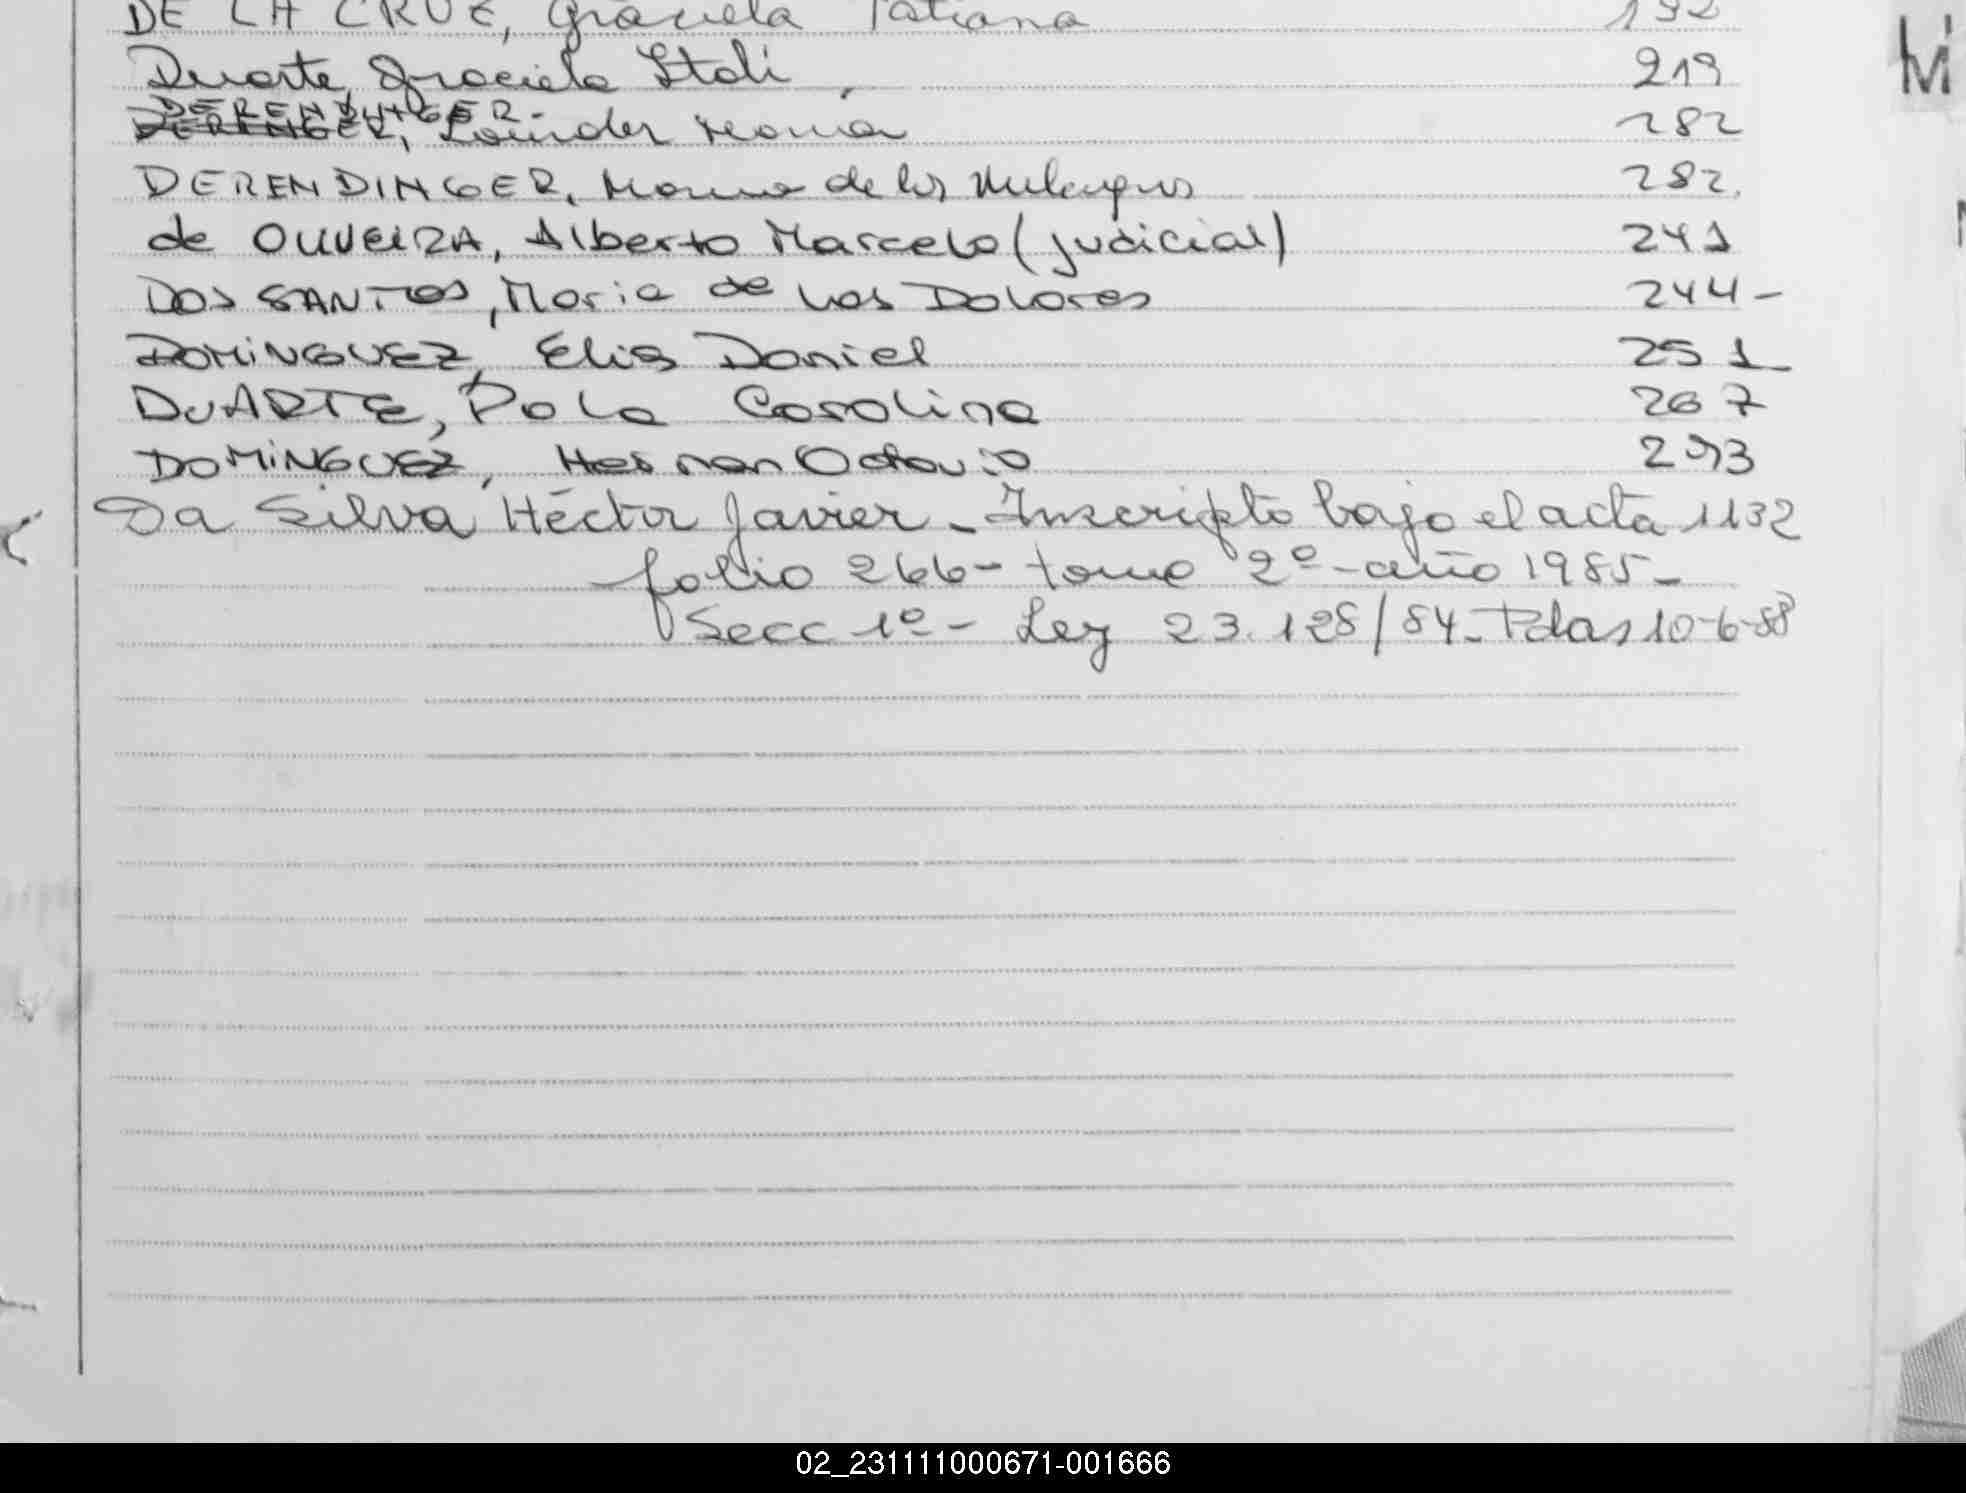 DE LA CRUZ, Graciela Tatiana 192
Duarte, Graciela Itati 219
DERENDINGER, Lourdes María 282
DERENDINGER, María de los Milagros 282
de OLIVEIRA, Alberto Marcelo (judicial) 241
DOS SANTOS, María de Los Dolores 244-
DOMINGUEZ, Elis Daniel 251
DUARTE, Pola Carolina 267
DOMINGUEZ, Hernan Octavio 293
Da Silva Héctor Javier - Inscripto bajo el acta 1132
folio 266 - tomo 2º - año 1985 -
Secc 1º - Ley 23.128/84 - Pdas 10-6-88
02_231111000671-001666